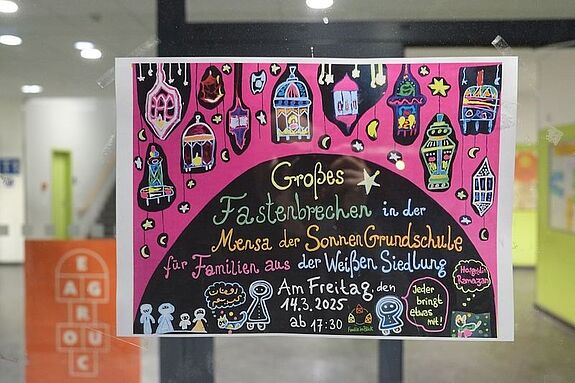 Großes
Fastenbrechen in der
Mensa der SonnenGrundschule
für Familien aus der Weißen Siedlung
Am Freitag den
14.3.2025
ab 17:30
Jeder
bringt
etwas
mit!
Hoşgeldin
Ramazan